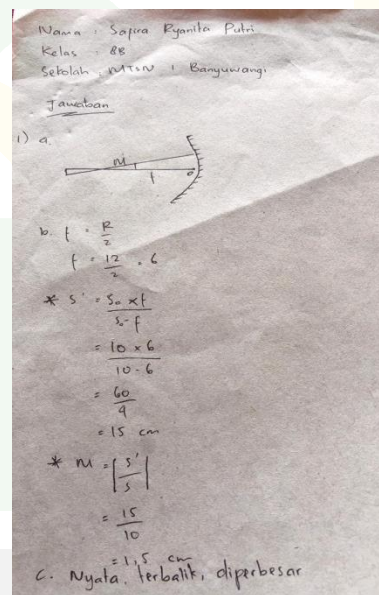 Nama : Safira Ryanita Putri
Kelas : 8B
Sekolah : MTsN 1 Banyuwangi
Jawaban
1) a.
M f o
b. f = R/2
f = 12/2 = 6
* s' = So x f / So - f
= 10 x 6 / 10 - 6
= 60/4
= 15 cm
* M = |s'/s|
= 15/10
= 1,5 cm
c. Nyata, terbalik, diperbesar